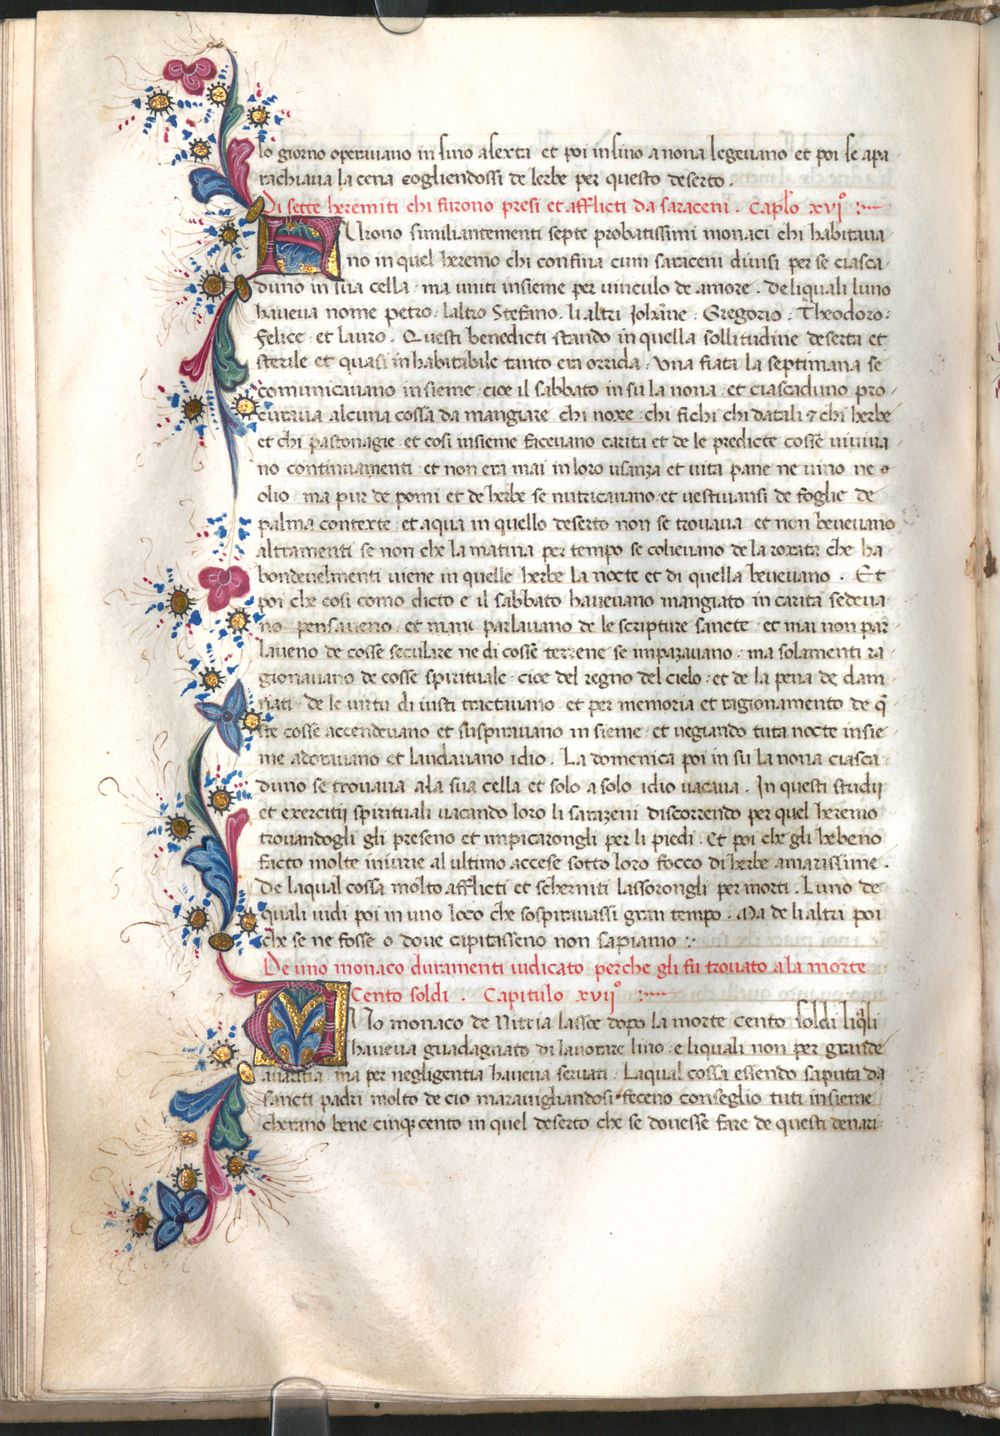 lo giorno operauano in sino a sexta et poi in sino a nona legeuano et poi se apa
rachiaua la cena cogliendossi de lerbe per questo deserto .
Di sette heremiti chi furono presi et afflicti da saraceni . Caplo xvi°
FUrono similiantementi septe probatissimi monaci chi habitaua
no in quel heremo chi confina cum saraceni diuisi per se ciasca
duno in sua cella . ma uniti insieme per uinculo de amore . De liquali luno
haueua nome petro . laltro Stefano . li altri Johãne . Gregorio . Theodoro .
Felice . et lauro . Questi benedicti stando in quella sollitudine deserta et
sterile et quasi inhabitabile tanto era orrida . Vna fiata la septimana se
comunicauano insieme . cioe il sabbato in su la nona . et ciascaduno pro
curaua alcuna cossa da mangiare . chi noxe . chi fichi chi datali & chi herbe
et chi pastonagie . et cosi insieme faceuano carita et de le predicte cosse uiuiua
no continuamenti . et non era mai in loro usanza et uita pane ne uino ne o
olio . ma pur de pomi et de herbe se nutricauano . et uestiuansi de foglie de
palma contexte . et aqua in quello deserto non se trouaua . et non beueuano
altramenti se non che la matina per tempo se colieuano de la roxata che ha
bondeuelmenti uiene in quelle herbe la nocte et di quella beueuano . Et
poi che cosi como dicto e il sabbato haueuano mangiato in carita sedeua
no pensaueno . et parlauano de le scripture sancte . et mai non par
laueno de cosse seculare ne di cosse terrene se impazauano . ma solamenti ra
gionauano de cosse spirituale . cioe del regno del cielo . et de la pena de dam
nati . de le uirtu di iusti tractauano . et per memoria et ragionamento de q̃
ste cosse accendeuano et suspirauano insieme . et uegiando tuta nocte insie
me adorauano et laudauano idio . La domenica poi in su la nona ciasca
duno se trouaua ala sua cella et solo a solo idio uacaua . In questi studii
et exercitii spirituali uacando loro li sarazeni discorrendo per quel heremo
trouandogli gli preseno et impicarongli per li piedi . Et poi che gli hebeno
facto molte iniurie al ultimo accese sotto loro focco di herbe amarissime .
De laqual cossa molto afflicti et scherniti lassorongli per morti . Luno de
quali uidi poi in uno loco che sospirauassi gran tempo . Ma de li altri poi
che se ne fosse o doue capitasseno non sapiamo :
De uno monaco duramenti iudicato perche gli fu trouato ala morte
Cento soldi . Capitulo xvii°
VNo monaco de Nitria lassoe dopo la morte cento soldi liq̃li
haueua guadagnato di lauorare lino . e liquali non per grande
auaritia . ma per negligentia haueua seruati . Laqual cossa essendo saputa da
sancti padri molto de cio marauigliandosi feceno conseglio tuti insieme
cherano bene cinq̃ cento in quel deserto che se douesse fare de questi denari